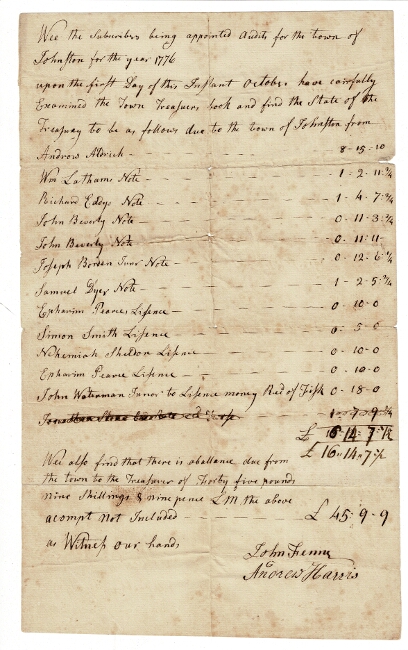 Wee the Subscribers being appointed Audits for the town of
Johnston for the year 1776
upon the first Day of this Instant October have carefully
Examined the Town Treasurers book and find the State of the
Treasury to be as follows due to the town of Johnston from
Andrew Aldrich — 8-15-10
Wm Lathams Note — 1-2-11-3/4
Richard Eddys Note — 1-4-7-3/4
John Beverly Note — 0-11-3-3/4
John Beverly Note — 0-11-11
Joseph Borden Junr Note — 0-12-6-3/4
Samuel Dyer Note — 1-2-5-3/4
Epharim Pearce Lisence — 0-10-0
Simon Smith Lisence — 0-5-0
Nehemiah Sheldon Lisence — 0-10-0
Epharim Pearce Lisence — 0-10-0
John Waterman Junor to Lisence money Recd of Fisk 0-18-0
£ 16-14-7-1/2
£ 16-14-7-1/2
We also find that there is aballance due from
the town to the Treasurer of Forty five pounds
nine Shillings & nine pence LM the above
acompt not Included — £ 45-9-9
as Witness our hands
John Fenner
Andrew Harris